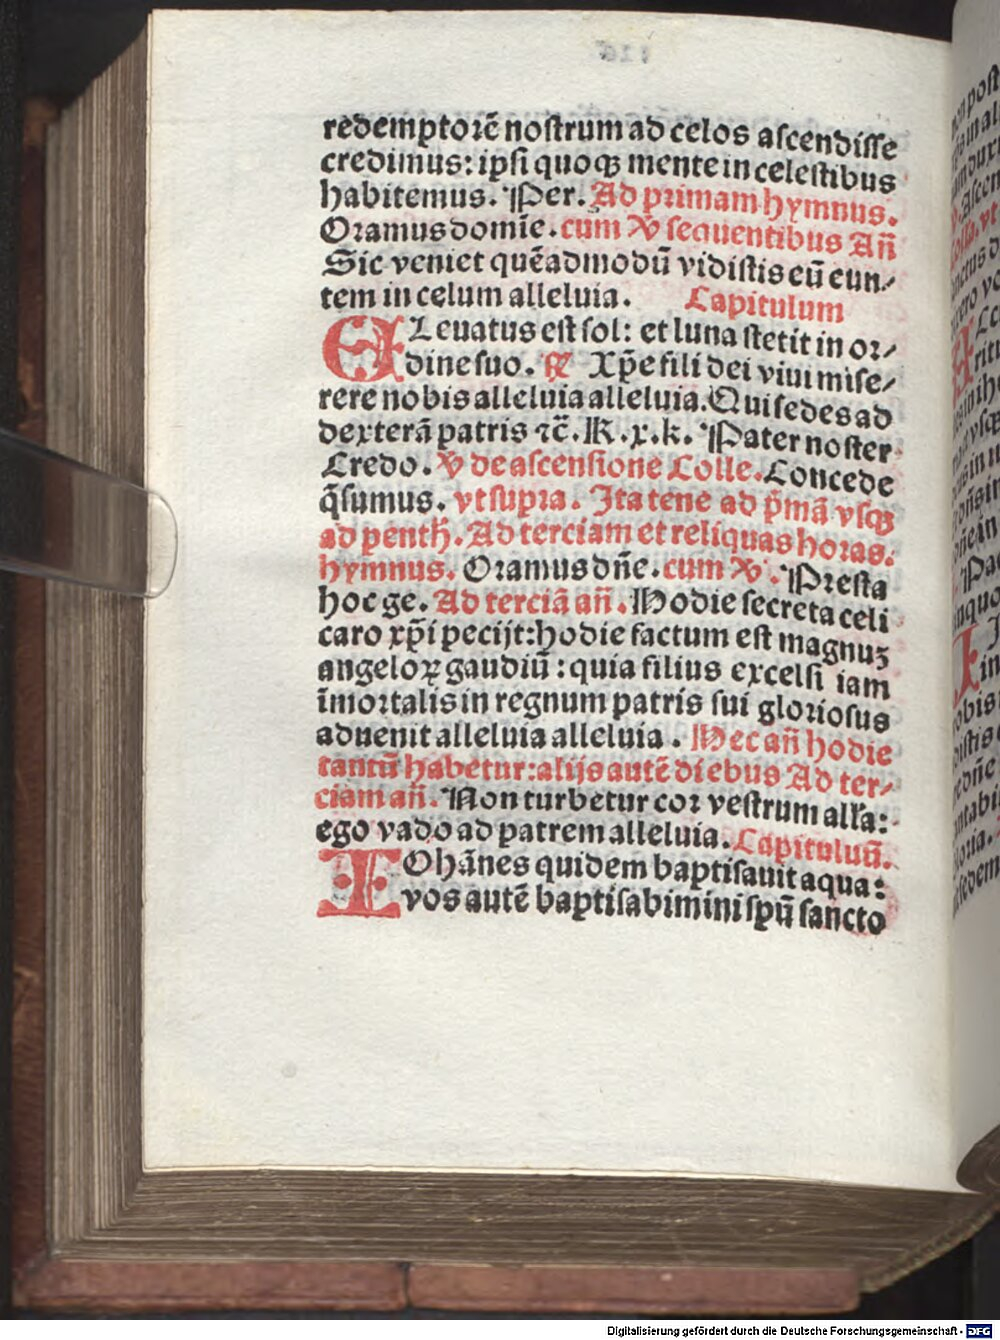 redemptorē nostrum ad celos ascendisse
credimus: ipsi quoqꝫ mente in celestibus
habitemus. Per. Ad primam hymnus.
Oramus domīe. cum ℣ sequentibus Añ
Sic veniet quēadmodū vidistis eū eun⸗
tem in celum alleluia. Capitulum
ELeuatus est sol: et luna stetit in or⸗
dine suo. ℟ Xp̄e fili dei viui mise⸗
rere nobis alleluia alleluia. Qui sedes ad
dexterā patris ⁊c̄. K. x. k. Pater noster
Credo. ℣ de ascensione Colle. Concede
q̄sumus. vt supra. Ita tene ad p̄mā vsqꝫ
ad penth. Ad terciam et reliquas horas.
hymnus. Oramus dn̄e. cum ℣. Presta
hoc ge. Ad terciā añ. Hodie secreta celi
caro xp̄i pecijt: hodie factum est magnuꝫ
angeloꝝ gaudiū: quia filius excelsi iam
īmortalis in regnum patris sui gloriosus
aduenit alleluia alleluia. Hec añ hodie
tantū habetur: alijs autē diebus Ad ter⸗
ciam añ. Non turbetur cor vestrum alľa:
ego vado ad patrem alleluia. Capitulū.
IOhānes quidem baptisauit aqua:
vos autē baptisabimini sp̄ū sancto
Digitalisierung gefördert durch die Deutsche Forschungsgemeinschaft - DFG